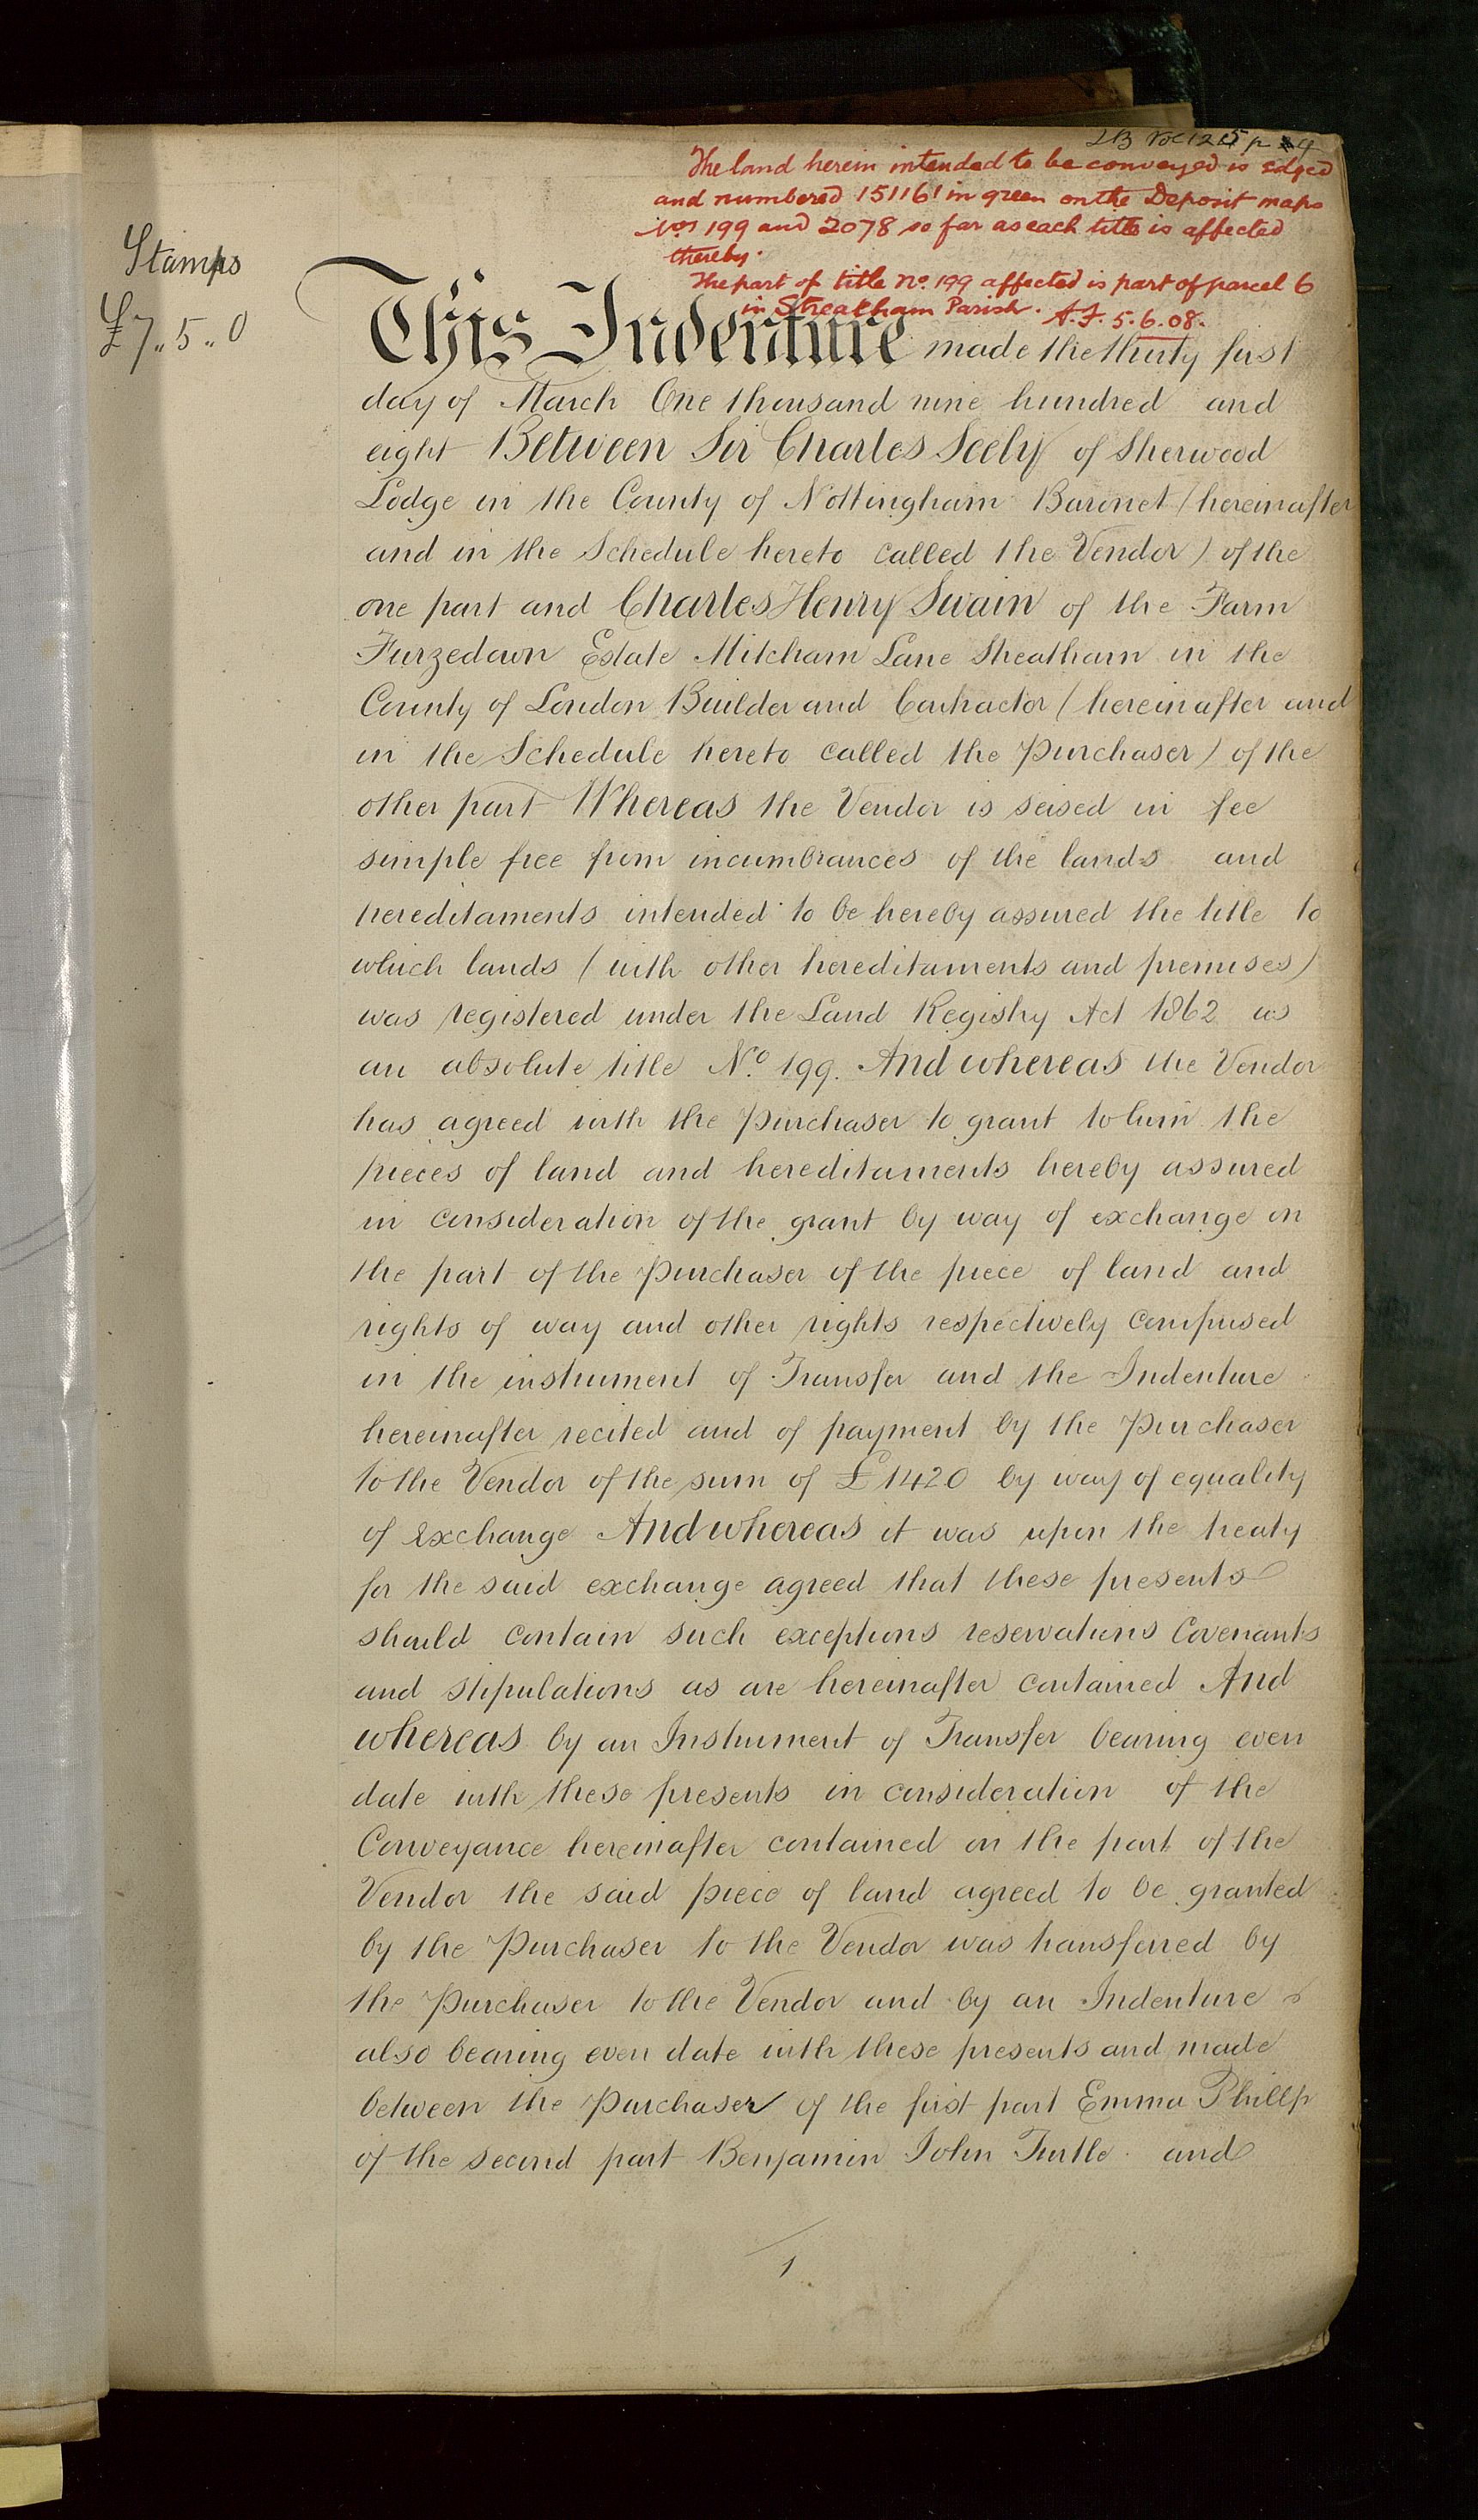 LB Vol 125 p 4
The land herein intended to be conveyed is edged
and numbered 151161 in green on the Deposit maps
Nos 199 and 2078 so far as each title is affected
thereby.
The part of title No. 199 affected is part of parcel 6
in Streatham Parish. A.F. 5.6.08.
Stamps
£7..5..0
This Indenture made the thirty first
day of March One thousand nine hundred and
eight Between Sir Charles Seely of Sherwood
Lodge in the County of Nottingham Baronet (hereinafter
and in the Schedule hereto called the Vendor) of the
one part and Charles Henry Swain of the Farm
Furzedown Estate Mitcham Lane Streatham in the
County of London Builder and Contractor (hereinafter and
in the Schedule hereto called the Purchaser) of the
other part Whereas the Vendor is seised in fee
simple free from incumbrances of the lands and
hereditaments intended to be hereby assured the title to
which lands (with other hereditaments and premises)
was registered under the Land Registry Act 1862 as
an absolute title No. 199. And whereas the Vendor
has agreed with the Purchaser to grant to him the
pieces of land and hereditaments hereby assured
in consideration of the grant by way of exchange on
the part of the Purchaser of the piece of land and
rights of way and other rights respectively comprised
in the instrument of Transfer and the Indenture
hereinafter recited and of payment by the Purchaser
to the Vendor of the sum of £1420 by way of equality
of exchange And whereas it was upon the treaty
for the said exchange agreed that these presents
should contain such exceptions reservations Covenants
and stipulations as are hereinafter contained And
whereas by an Instrument of Transfer bearing even
date with these presents in consideration of the
Conveyance hereinafter contained on the part of the
Vendor the said piece of land agreed to be granted
by the Purchaser to the Vendor was transferred by
the Purchaser to the Vendor and by an Indenture
also bearing even date with these presents and made
between the Purchaser of the first part Emma Phillp
of the second part Benjamin John Turtle and
1